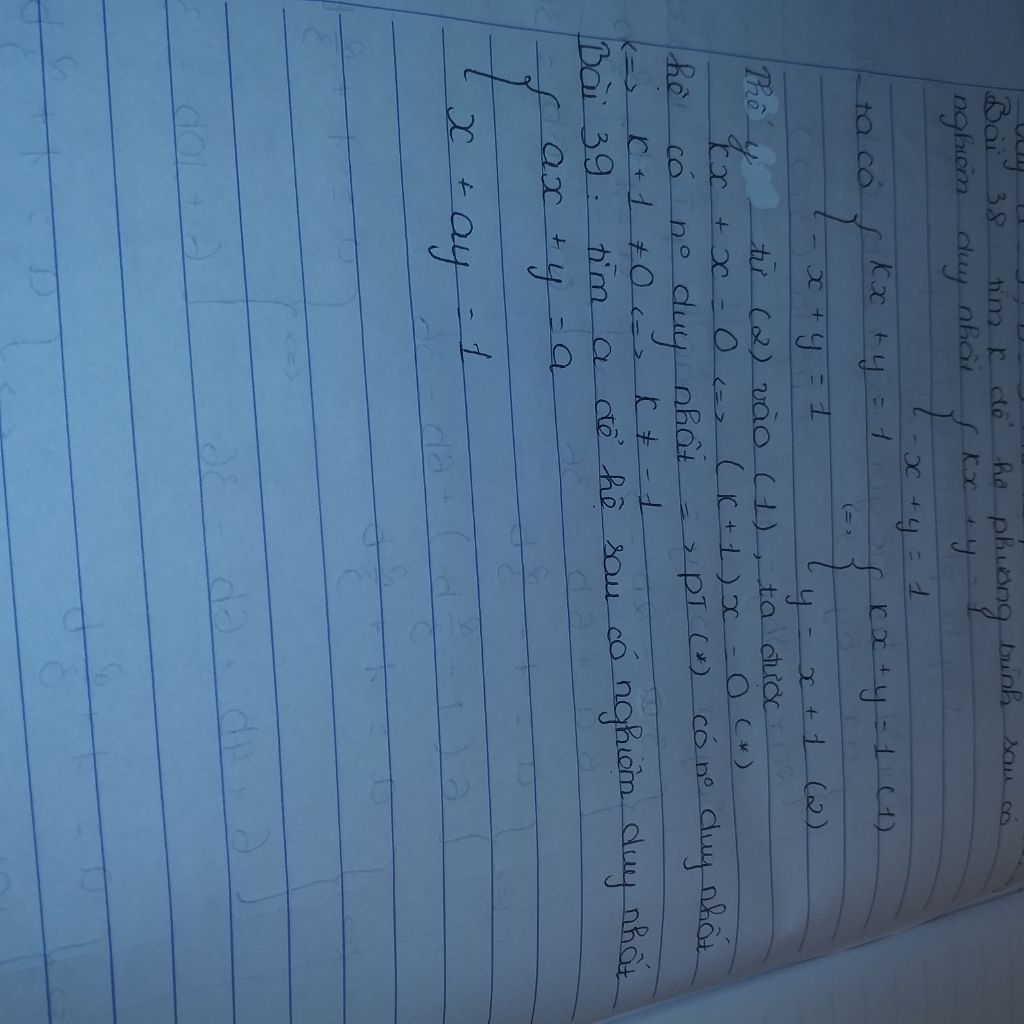 Bài 38 tìm k để hệ phương trình sau có
nghiệm duy nhất { kx + y = 1
{ -x + y = 1
ta có { kx + y = 1 <=> { kx + y = 1 (1)
{ -x + y = 1 { y = x + 1 (2)
Thế y từ (2) vào (1), ta được
kx + x = 0 <=> (k+1)x = 0 (*)
hệ có nº duy nhất => PT (*) có nº duy nhất
<=> k + 1 ≠ 0 <=> k ≠ -1
Bài 39. tìm a để hệ sau có nghiệm duy nhất
{ ax + y = a
{ x + ay = 1